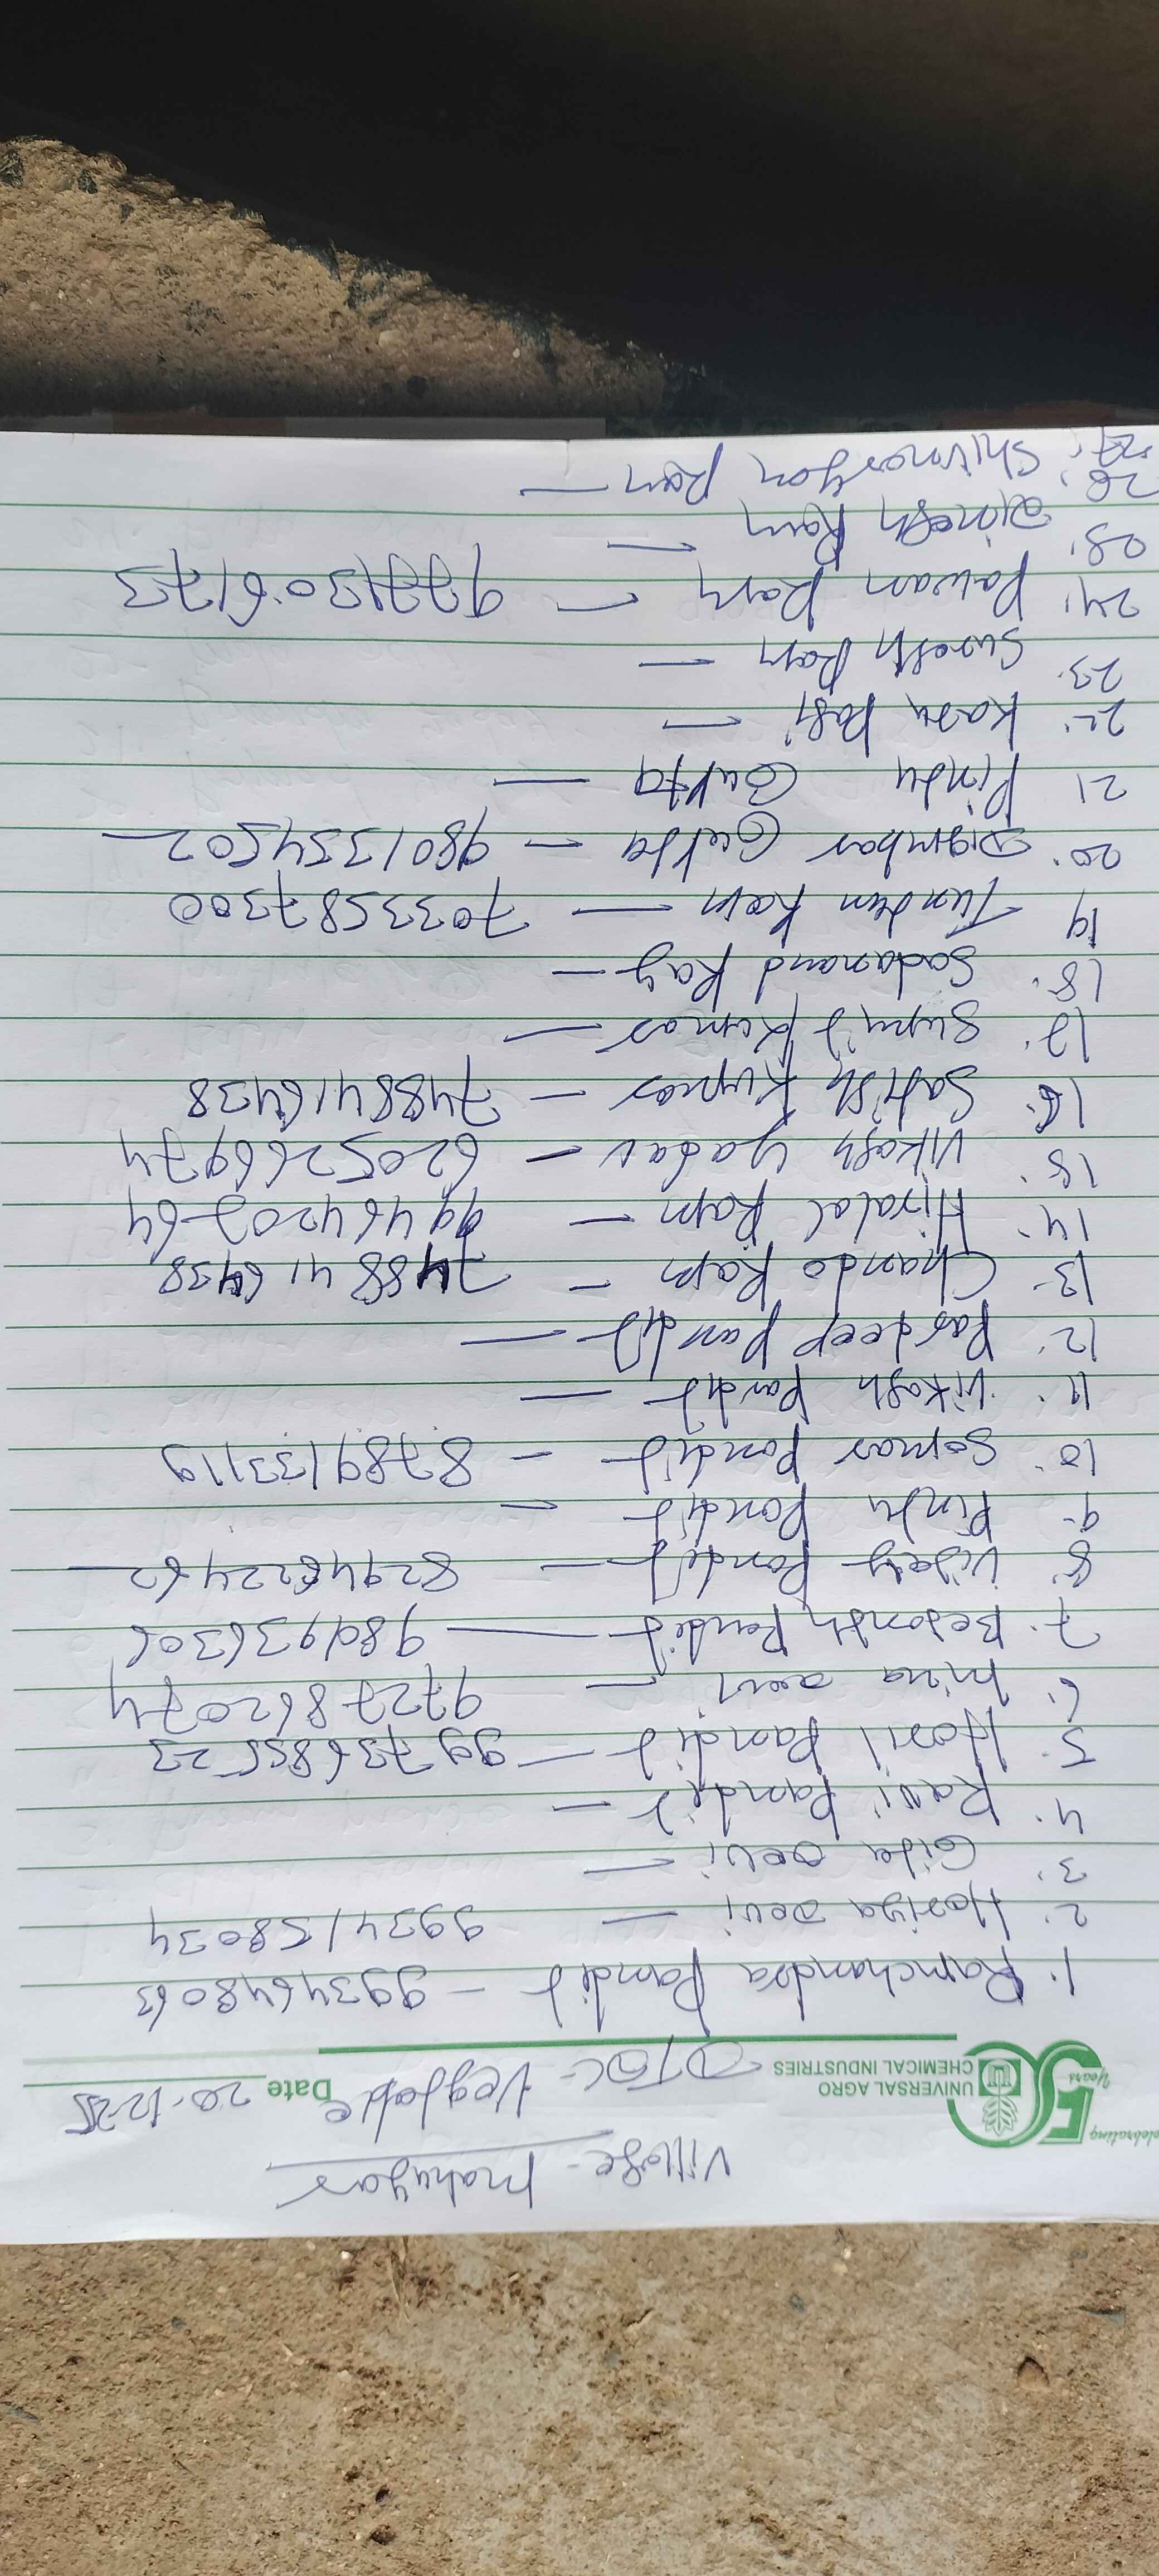 Village - Mahugar
Celebrating
55 Years
UNIVERSAL AGRO
CHEMICAL INDUSTRIES
OTOC - Vegtable Date 20.12.25
1. Ramchandra Pandit - 9934648063
2. Hariya Devi - 9934158034
3. Gita Devi -
4. Ravi Pandit -
5. Haril Pandit - 9973685523
6. Mina Devi - 9727862074
7. Bejonth Pandit - 9801936306
8. Vijay Pandit - 8294622462
9. Pintu Pandit -
10. Somar Pandit - 8789133119
11. Vikash Pandit -
12. Pardeep Pandit -
13. Chando Ram - 7488416438
14. Hiralal Ram - 9946420764
15. Vikash Yadav - 6205266974
16. Satish Kumar - 7488416438
17. Sumit Kumar -
18. Sadanand Ray -
19 Tundun Ram - 7033587300
20. Digmbar Gupta - 9801354502
21 Pintu Gupta -
22. Kasu Pasi -
23. Suresh Ram -
24. Pawan Ram - 9771306173
25. Dinesh Ram -
26. Shivnaryan Ram -
27.